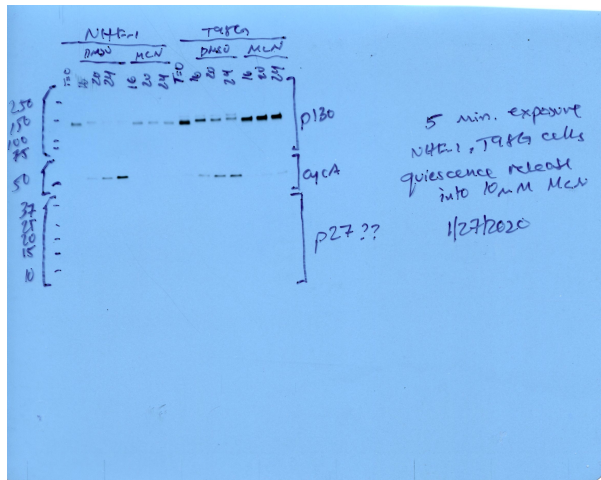 NHF-1 T98G
DMSO MCN DMSO MCN
T=0 16 20 24 16 20 24 T=0 16 20 24 16 20 24
250
150
100
75
p130
50
cycA
37
25
20
15
10
p27??
5 min. exposure
NHF-1, T98G cells
quiescence release
into 10 mM MCN
1/27/2020